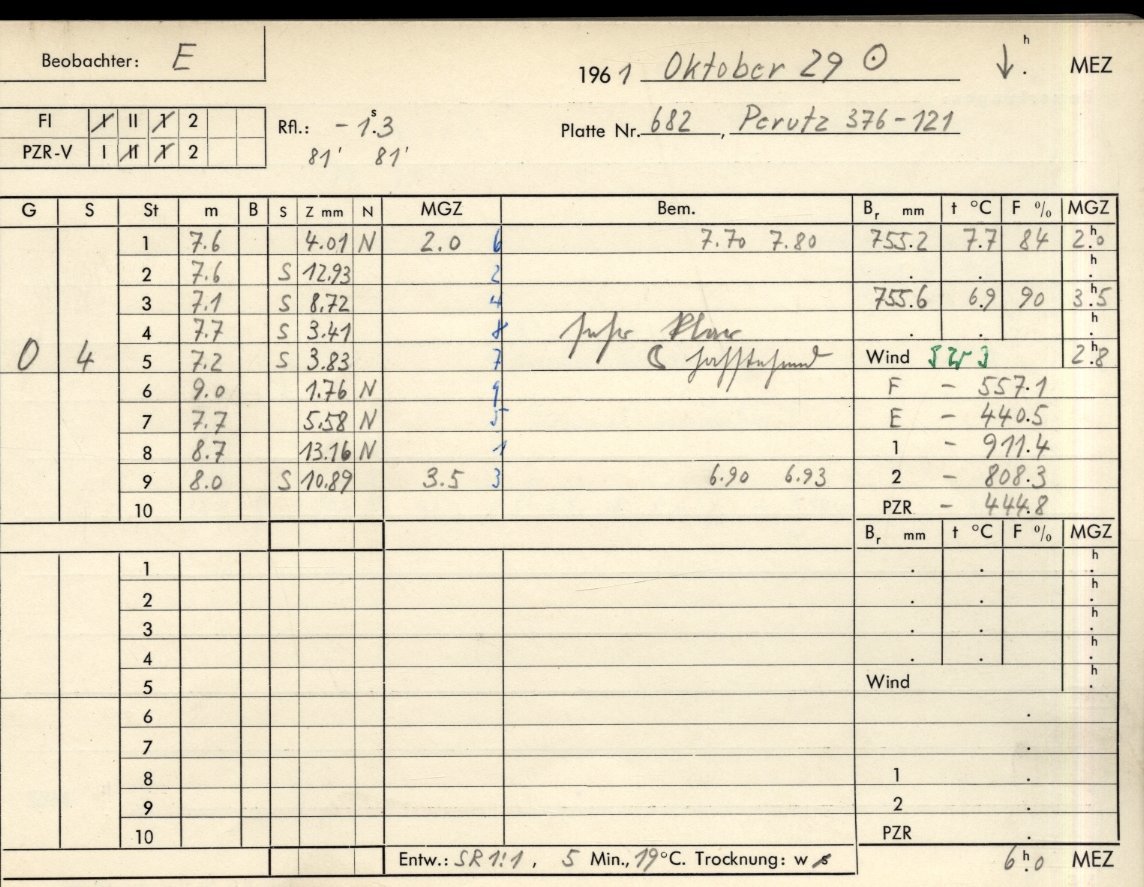 Beobachter: E
1961 Oktober 29 ☉ ↓ . h MEZ
FI I II 1 2
PZR-V I II 1 2
Rfl.: - 1ˢ.3
81' 81'
Platte Nr. 682, Perutz 376-121
G S St m B S Z mm N MGZ Bem. Br mm t °C F % MGZ
1 7.6 4.01 N 2.0 6 7.70 7.80 755.2 7.7 84 2.ʰ0
2 7.6 S 12.93 2 . . . h
3 7.1 S 8.72 4 755.6 6.9 90 3.ʰ5
4 7.7 S 3.41 8 sehr klar . . . h
0 4 5 7.2 S 3.83 7 ☾ Wind SW 3 2.ʰ8
6 9.0 1.76 N 9 F - 557.1
7 7.7 5.58 N 5 E - 440.5
8 8.7 13.16 N 1 1 - 911.4
9 8.0 S 10.89 3.5 3 6.90 6.93 2 - 808.3
10 PZR - 444.8
Br mm t °C F % MGZ
1 . . . h
2 . h
3 . . . h
4 . . . h
5 Wind . h
6 .
7 .
8 1 .
9 2 .
10 PZR .
Entw.: SR 1:1, 5 Min., 19°C. Trocknung: w s 6.ʰ0 MEZ